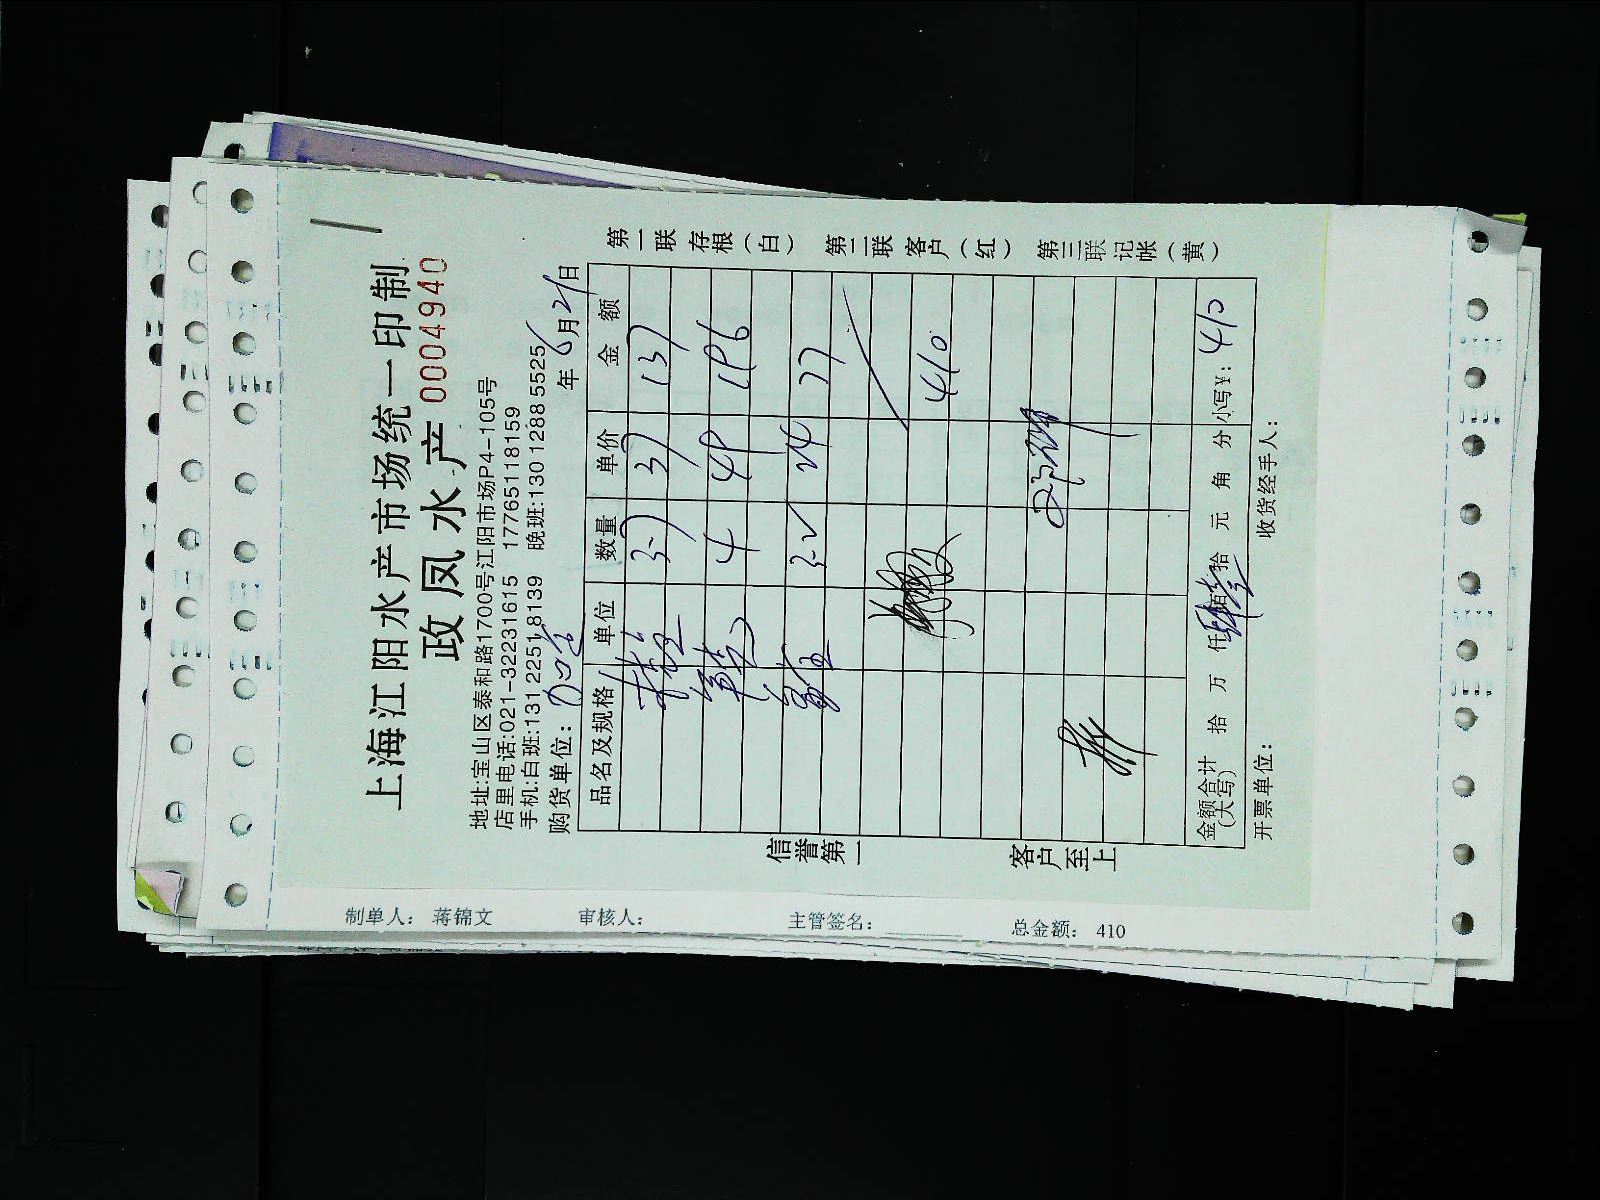 上海江阳水产市场统一印制
政凤水产 0004940
地址:宝山区泰和路1700号江阳市场P4-105号
店里电话:021-32231615 17765118159
手机:白班:131 2251 8139 晚班:130 1288 5525
购货单位: 年 6月21日
品名及规格 单位 数量 单价 金额
3.7 37 137
4 49 196
3.2 24 77
410
金额合计(大写) 拾 万 仟 佰 拾 元 角 分 小写¥: 410
开票单位: 收货经手人:
第一联存根(白) 第二联客户(红) 第三联记帐(黄)
信誉第一
客户至上
制单人: 蒋锦文 审核人: 主管签名: 总金额: 410